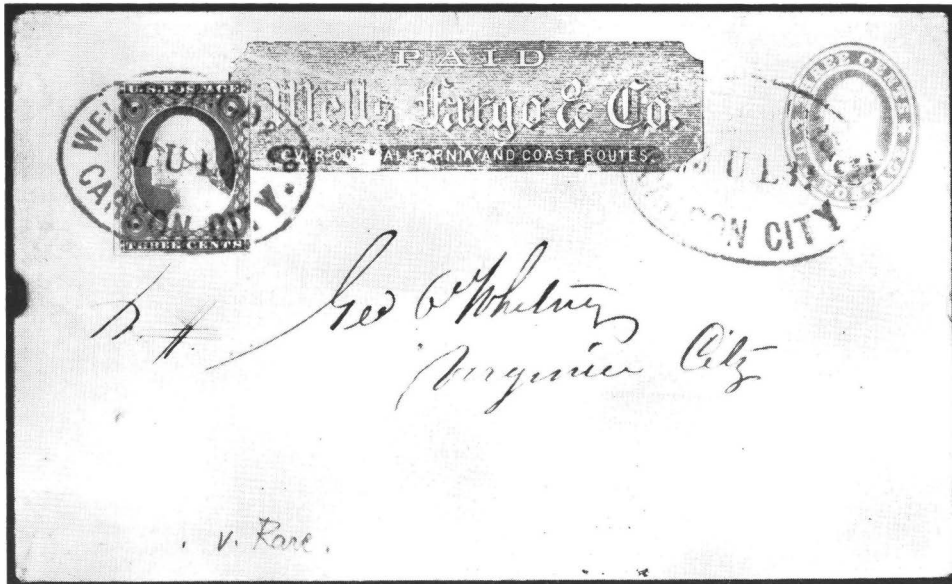 PAID
Wells Fargo & Co.
OVER OUR CALIFORNIA AND COAST ROUTES.
U.S. POSTAGE
THREE CENTS
WELLS
CARSON CITY
THREE CENTS
CITY
Geo Whitney
Virginia City
v. Rare.